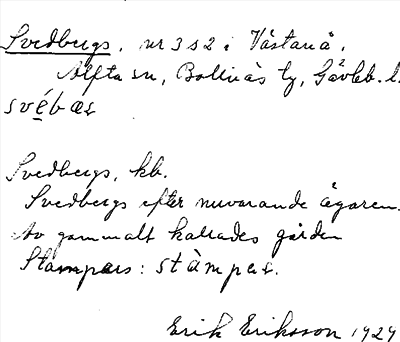 Svedbergs, nr 3 s2 i Västanå,
Alfta sn, Bollnäs tg, Gävleb. l.
svébas
Svedbergs, kb.
Svedbergs efter nuvarande ägaren.
Av gammalt kallades gården
Stampars: stàmpas.
Erik Eriksson 1929